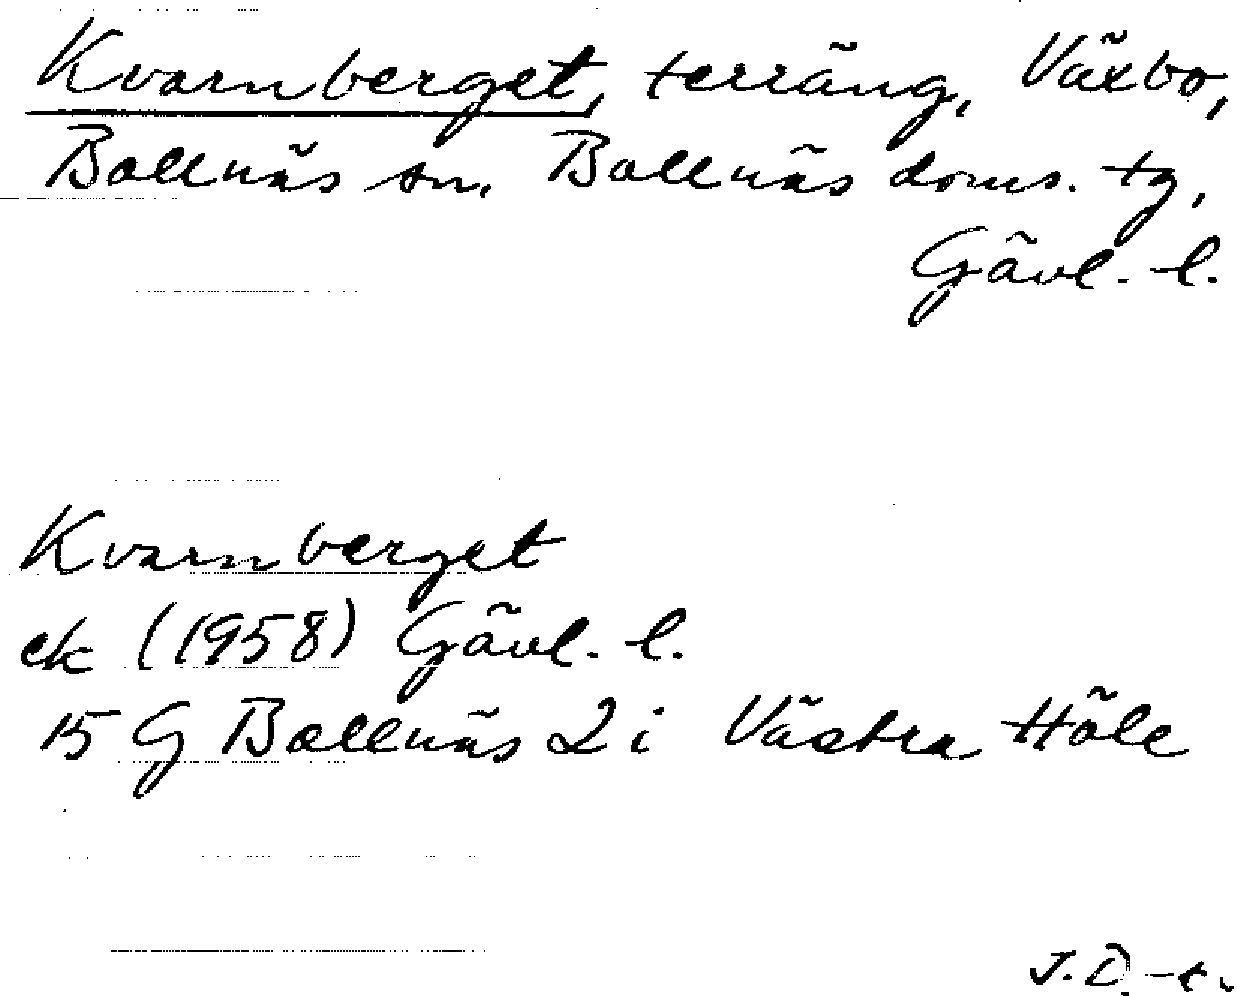 Kvarnberget, terräng, Växbo,
Bollnäs sn. Bollnäs doms. tg,
Gävl. l.
Kvarnberget
ek (1958) Gävl. l.
15 G Bollnäs 2 i Västra Höle
J. D.